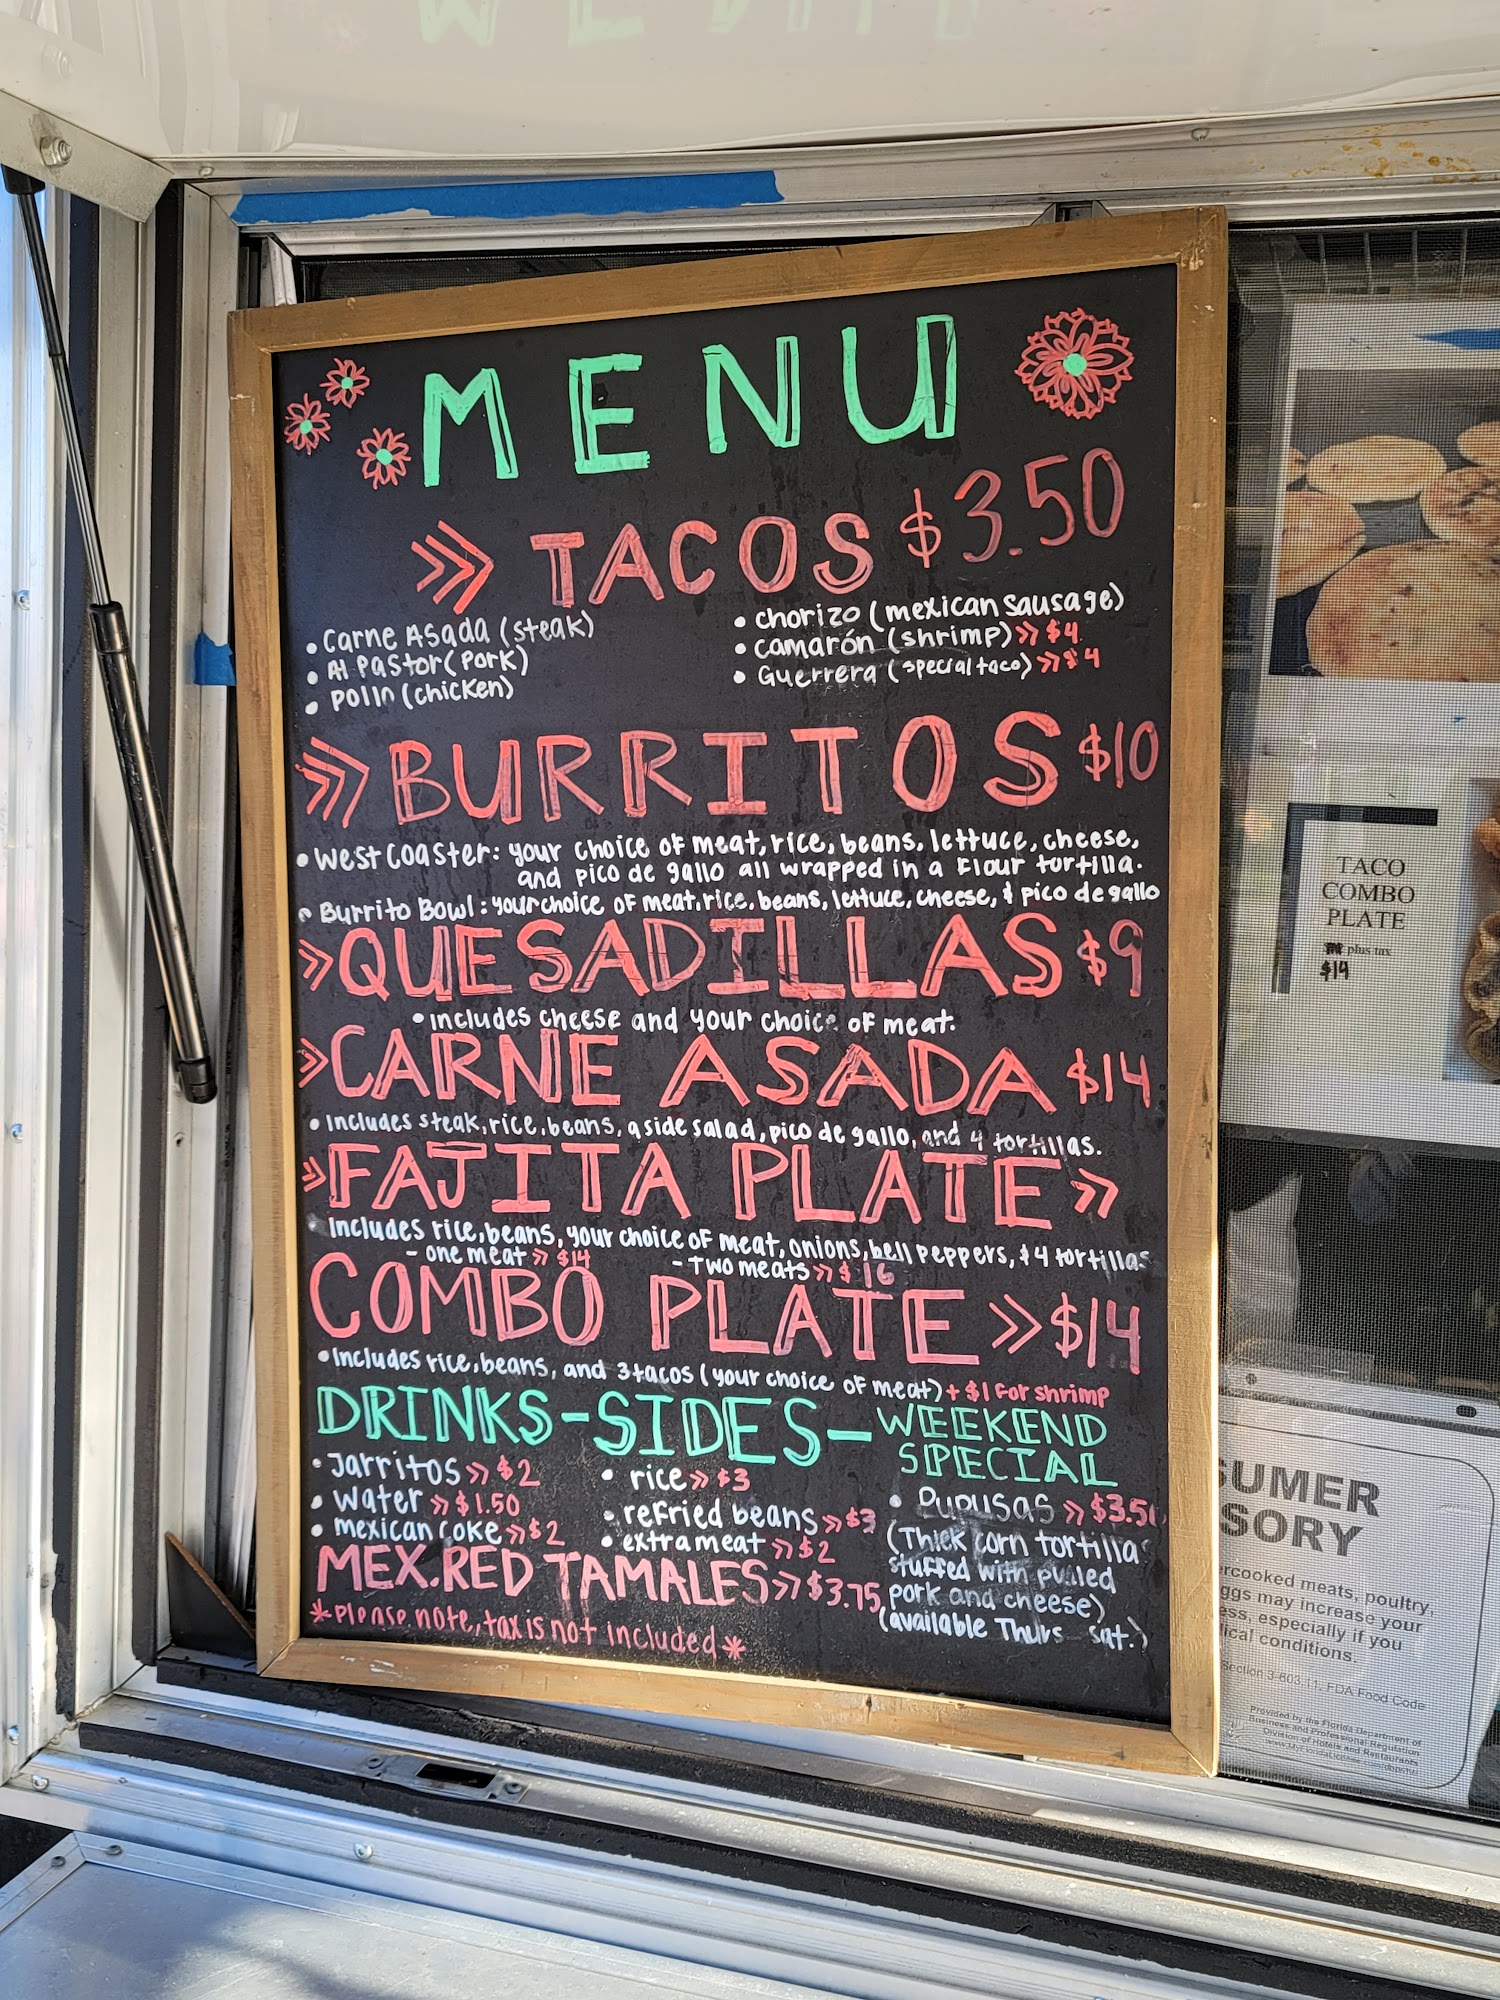 MENU
TACOS $3.50
• Carne Asada (steak)
• Al Pastor (Pork)
• Pollo (chicken)
• chorizo (mexican sausage)
• camarón (shrimp) >> $4
• Guerrera (special taco) >> $4
BURRITOS $10
• West Coaster: your choice of meat, rice, beans, lettuce, cheese,
and pico de gallo all wrapped in a Flour tortilla.
• Burrito Bowl: your choice of meat, rice, beans, lettuce, cheese, & pico de gallo
QUESADILLAS $9
• includes cheese and your choice of meat.
CARNE ASADA $14
• Includes steak, rice, beans, a side salad, pico de gallo, and 4 tortillas.
FAJITA PLATE >>
Includes rice, beans, your choice of meat, onions, bell peppers, & 4 tortillas
- one meat >> $14 - Two meats >> $16
COMBO PLATE >> $14
• Includes rice, beans, and 3 tacos (your choice of meat) + $1 for shrimp
DRINKS - SIDES - WEEKEND
SPECIAL
• Jarritos >> $2
• Water >> $1.50
• mexican coke >> $2
• rice >> $3
• refried beans >> $3
• extra meat >> $2
• Pupusas >> $3.50
(Thick corn tortilla
stuffed with pulled
pork and cheese)
(available Thurs - Sat.)
MEX. RED TAMALES >> $3.75
*Please note, tax is not included*
TACO
COMBO
PLATE
plus tax
$14
SUMER
SORY
rcooked meats, poultry,
ggs may increase your
ess, especially if you
ical conditions.
Section 3-603.11, FDA Food Code
Provided by the Florida Department of
Business and Professional Regulation
Division of Hotels and Restaurants